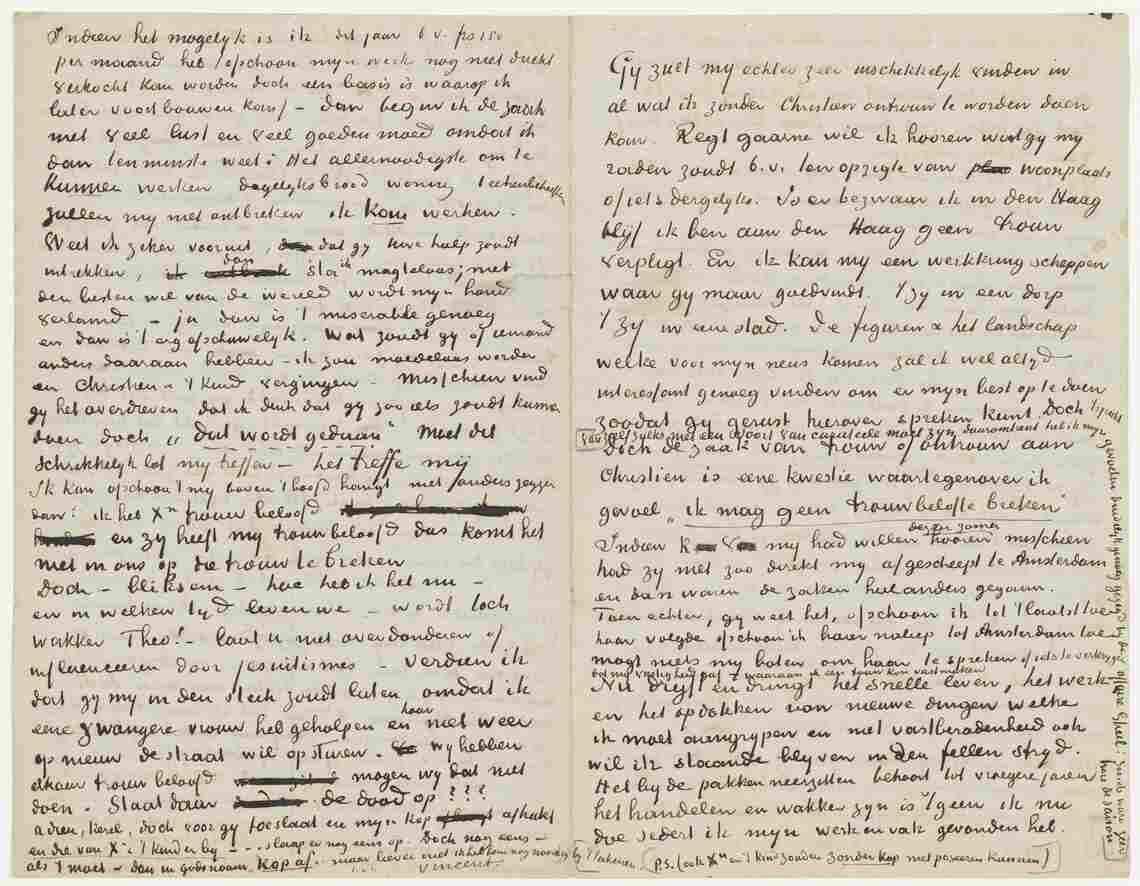 Indien het mogelyk is ik dit jaar b.v. frs 150
per maand heb (ofschoon myn werk nog niet direkt
verkocht kan worden doch een basis is waarop ik
later voortbouwen kan) – dan begin ik de zaak
met veel lust en veel goeden moed omdat ik
dan tenminste weet: Het allernoodigste om te
kunnen werken dagelyksbrood woning teekenbehoeften
zullen my niet ontbreken ik kan werken.
Weet ik zeker vooruit, dat gy uwe hulp zoudt
intrekken, dan sta ik magteloos; met
den besten wil van de wereld wordt myn hand
verlamd – ja dan is 't miserable genoeg
en dan is 't erg afschuwelyk. Wat zoudt gy of iemand
anders daaraan hebben – ik zou moedeloos worden
en Christien & 't kind vergingen – Misschien vind
gy het overdreven dat ik denk dat gy zoo iets zoudt kunnen
doen doch „dat wordt gedaan" Moet dit
schrikkelyk lot my treffen – het treffe mij
Ik kan ofschoon 't my boven 't hoofd hangt niet anders zeggen
dan: ik heb Xn trouw beloofd
en zy heeft my trouw beloofd dus komt het
niet in ons op die trouw te breken
Doch – bliksem – hoe heb ik het nu –
en in welken tyd leven we – wordt toch
wakker Theo! – laat u niet overdonderen of
influenceeren door jesuitismes – Verdien ik
dat gy my in den steek zoudt laten omdat ik
eene zwangere vrouw heb geholpen en haar niet weer
op nieuw de straat wil opsturen. wy hebben
elkaar trouw beloofd mogen wy dat niet
doen. Staat daar de dood op???
adieu, kerel, doch voor gy toeslaat en myn kop afhakt
en die van Xn & 't kind er by – – – slaap er nog eens op. Doch nog eens –
als 't moet – dan in godsnaam „Kop af" maar liever niet ik heb hem nog noodig by 't teekenen.
Vincent
(P.S. (ook Xn en 't kind zouden zonder kop niet poseeren kunnen)
Gy zult my echter zeer inschikkelyk vinden in
al wat ik zonder Christien ontrouw te worden doen
kan. Regt gaarne wil ik hooren wat gy my
raden zoudt b.v. ten opzigte van woonplaats
of iets dergelyks. Is er bezwaar ik in den Haag
blyf ik ben aan den Haag geen trouw
verpligt. En ik kan my een werkkring scheppen
waar gy maar goedvindt. 't Zy in een dorp
't zy in eene stad. De figuren & het landschap
welke voor myn neus komen zal ik wel altyd
interessant genoeg vinden om er myn best op te doen
zoodat gy gerust hierover spreken kunt. Doch
Doch de zaak van trouw of ontrouw aan
Christien is eene kwestie waartegenover ik
gevoel „ik mag geen trouwbelofte breken"
Indien K my had willen hooren dezen zomer misschien
had zy niet zoo direkt my afgescheept te Amsterdam
en dan waren de zaken heel anders gegaan.
Toen echter, gy weet het, ofschoon ik tot 't laatst toe
haar volgde ofschoon ik haar naliep tot Amsterdam toe
mogt niets my baten om haar te spreken of iets te verkrygen
dat my vastigheid gaf & waaraan ik een trouw kon vastmaken
Nu dryft en dringt het snelle leven, het werk
en het opdokken van nieuwe dingen welke
ik moet aangrypen en met vastberadenheid ook
wil ik staande blyven in den fellen stryd.
Het by de pakken neerzitten behoort tot vroegere jaren
het handelen en wakker zyn is 't geen ik nu
doe sedert ik myn werk en vak gevonden heb.